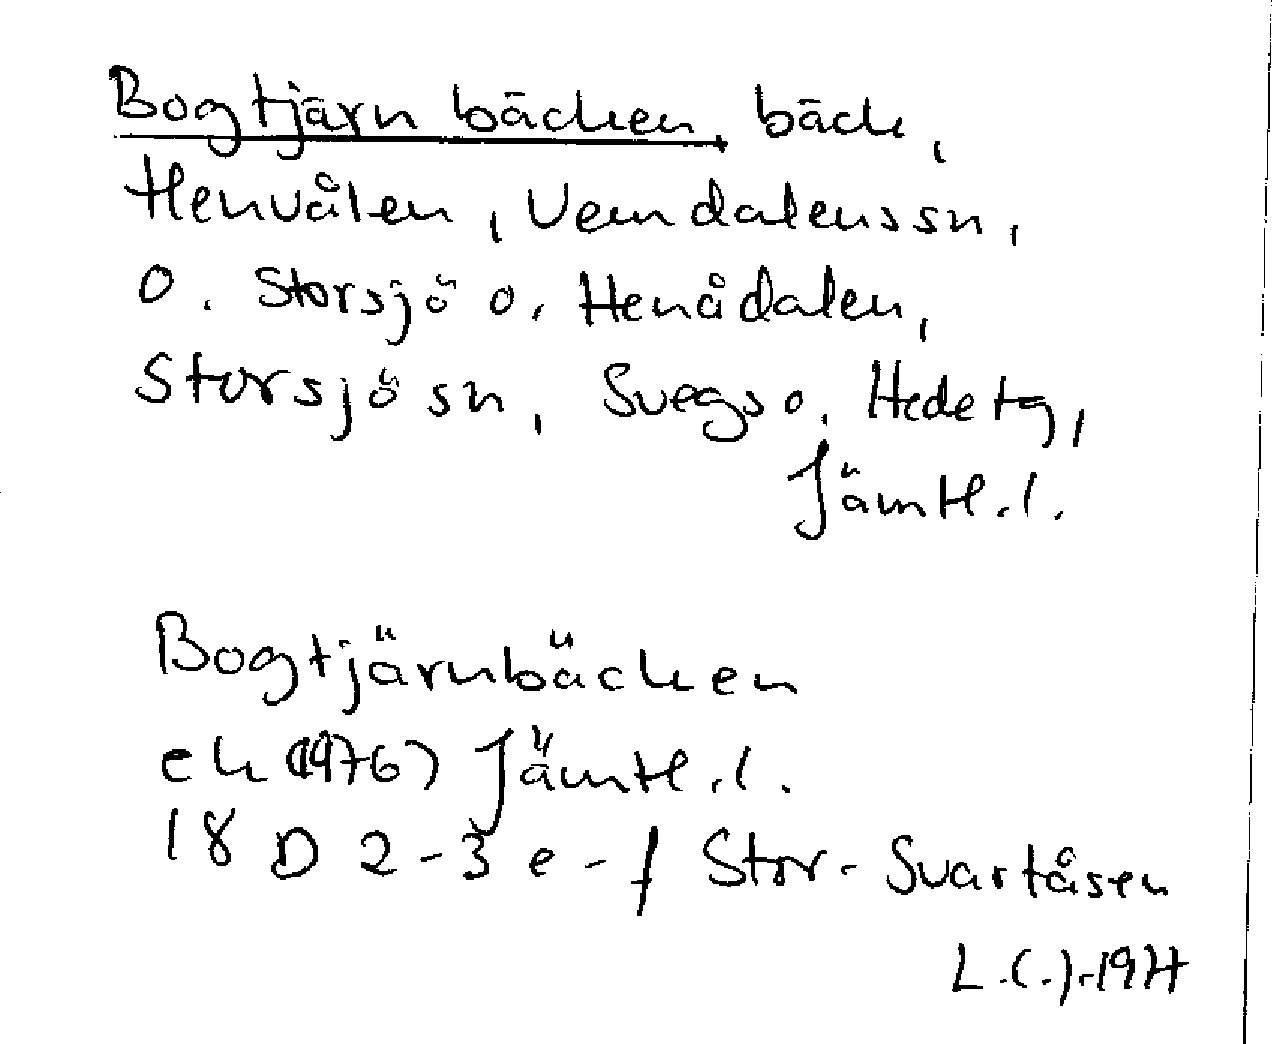 Bogtjärnbäcken, bäck,
Henvålen, Vemdalens sn,
o. Storsjö o. Henådalen,
Storsjö sn, Svegs o. Hede tg,
Jämtl. l.
Bogtjärnbäcken
ek (1976) Jämtl. l.
18 D 2-3 e-f Stor-Svartåsen